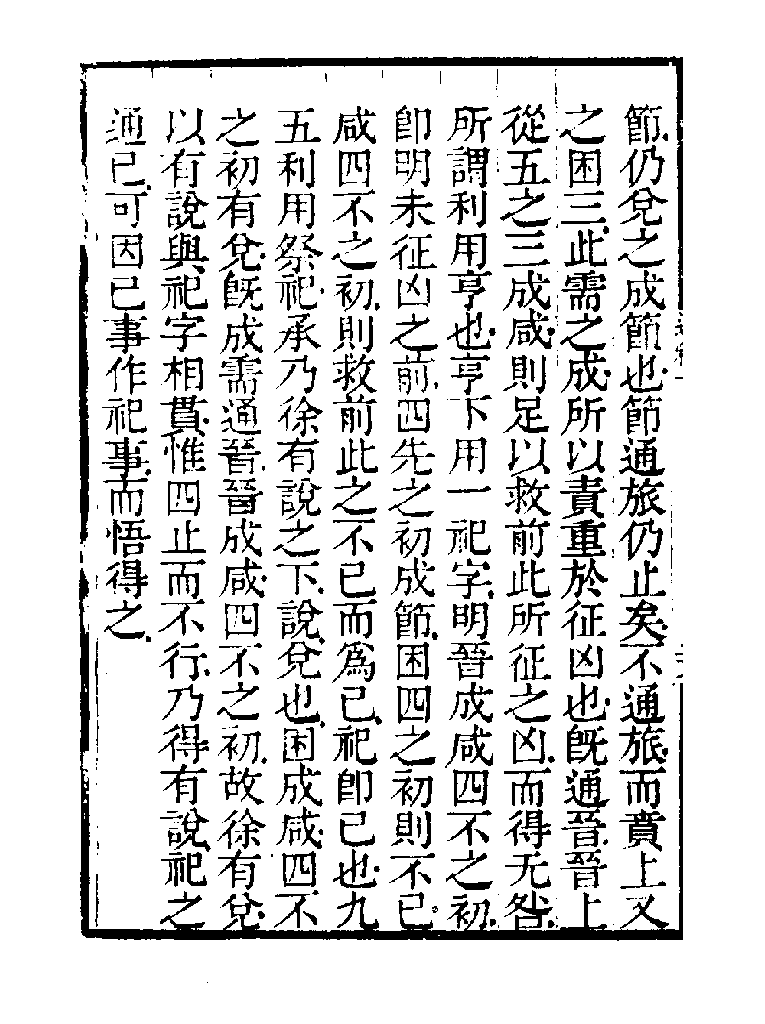 節仍兌之成節也節通旅仍止矣不通旅而賁上又
之困三此需之成所以責重於征凶也旣通晉晉上
從五之三成咸則足以救前此所征之凶而得无咎
所謂利用亨也亨下用一祀字明晉成咸四不之初
卽明未征凶之前四先之初成節困四之初則不已
咸四不之初則救前此之不已而爲已祀卽已也九
五利用祭祀承乃徐有說之下說兌也困成咸四不
之初有兌旣成需通晉晉成咸四不之初故徐有兌
以有說與祀字相貫惟四止而不行乃得有說祀之
通已可因已事作祀事而悟得之